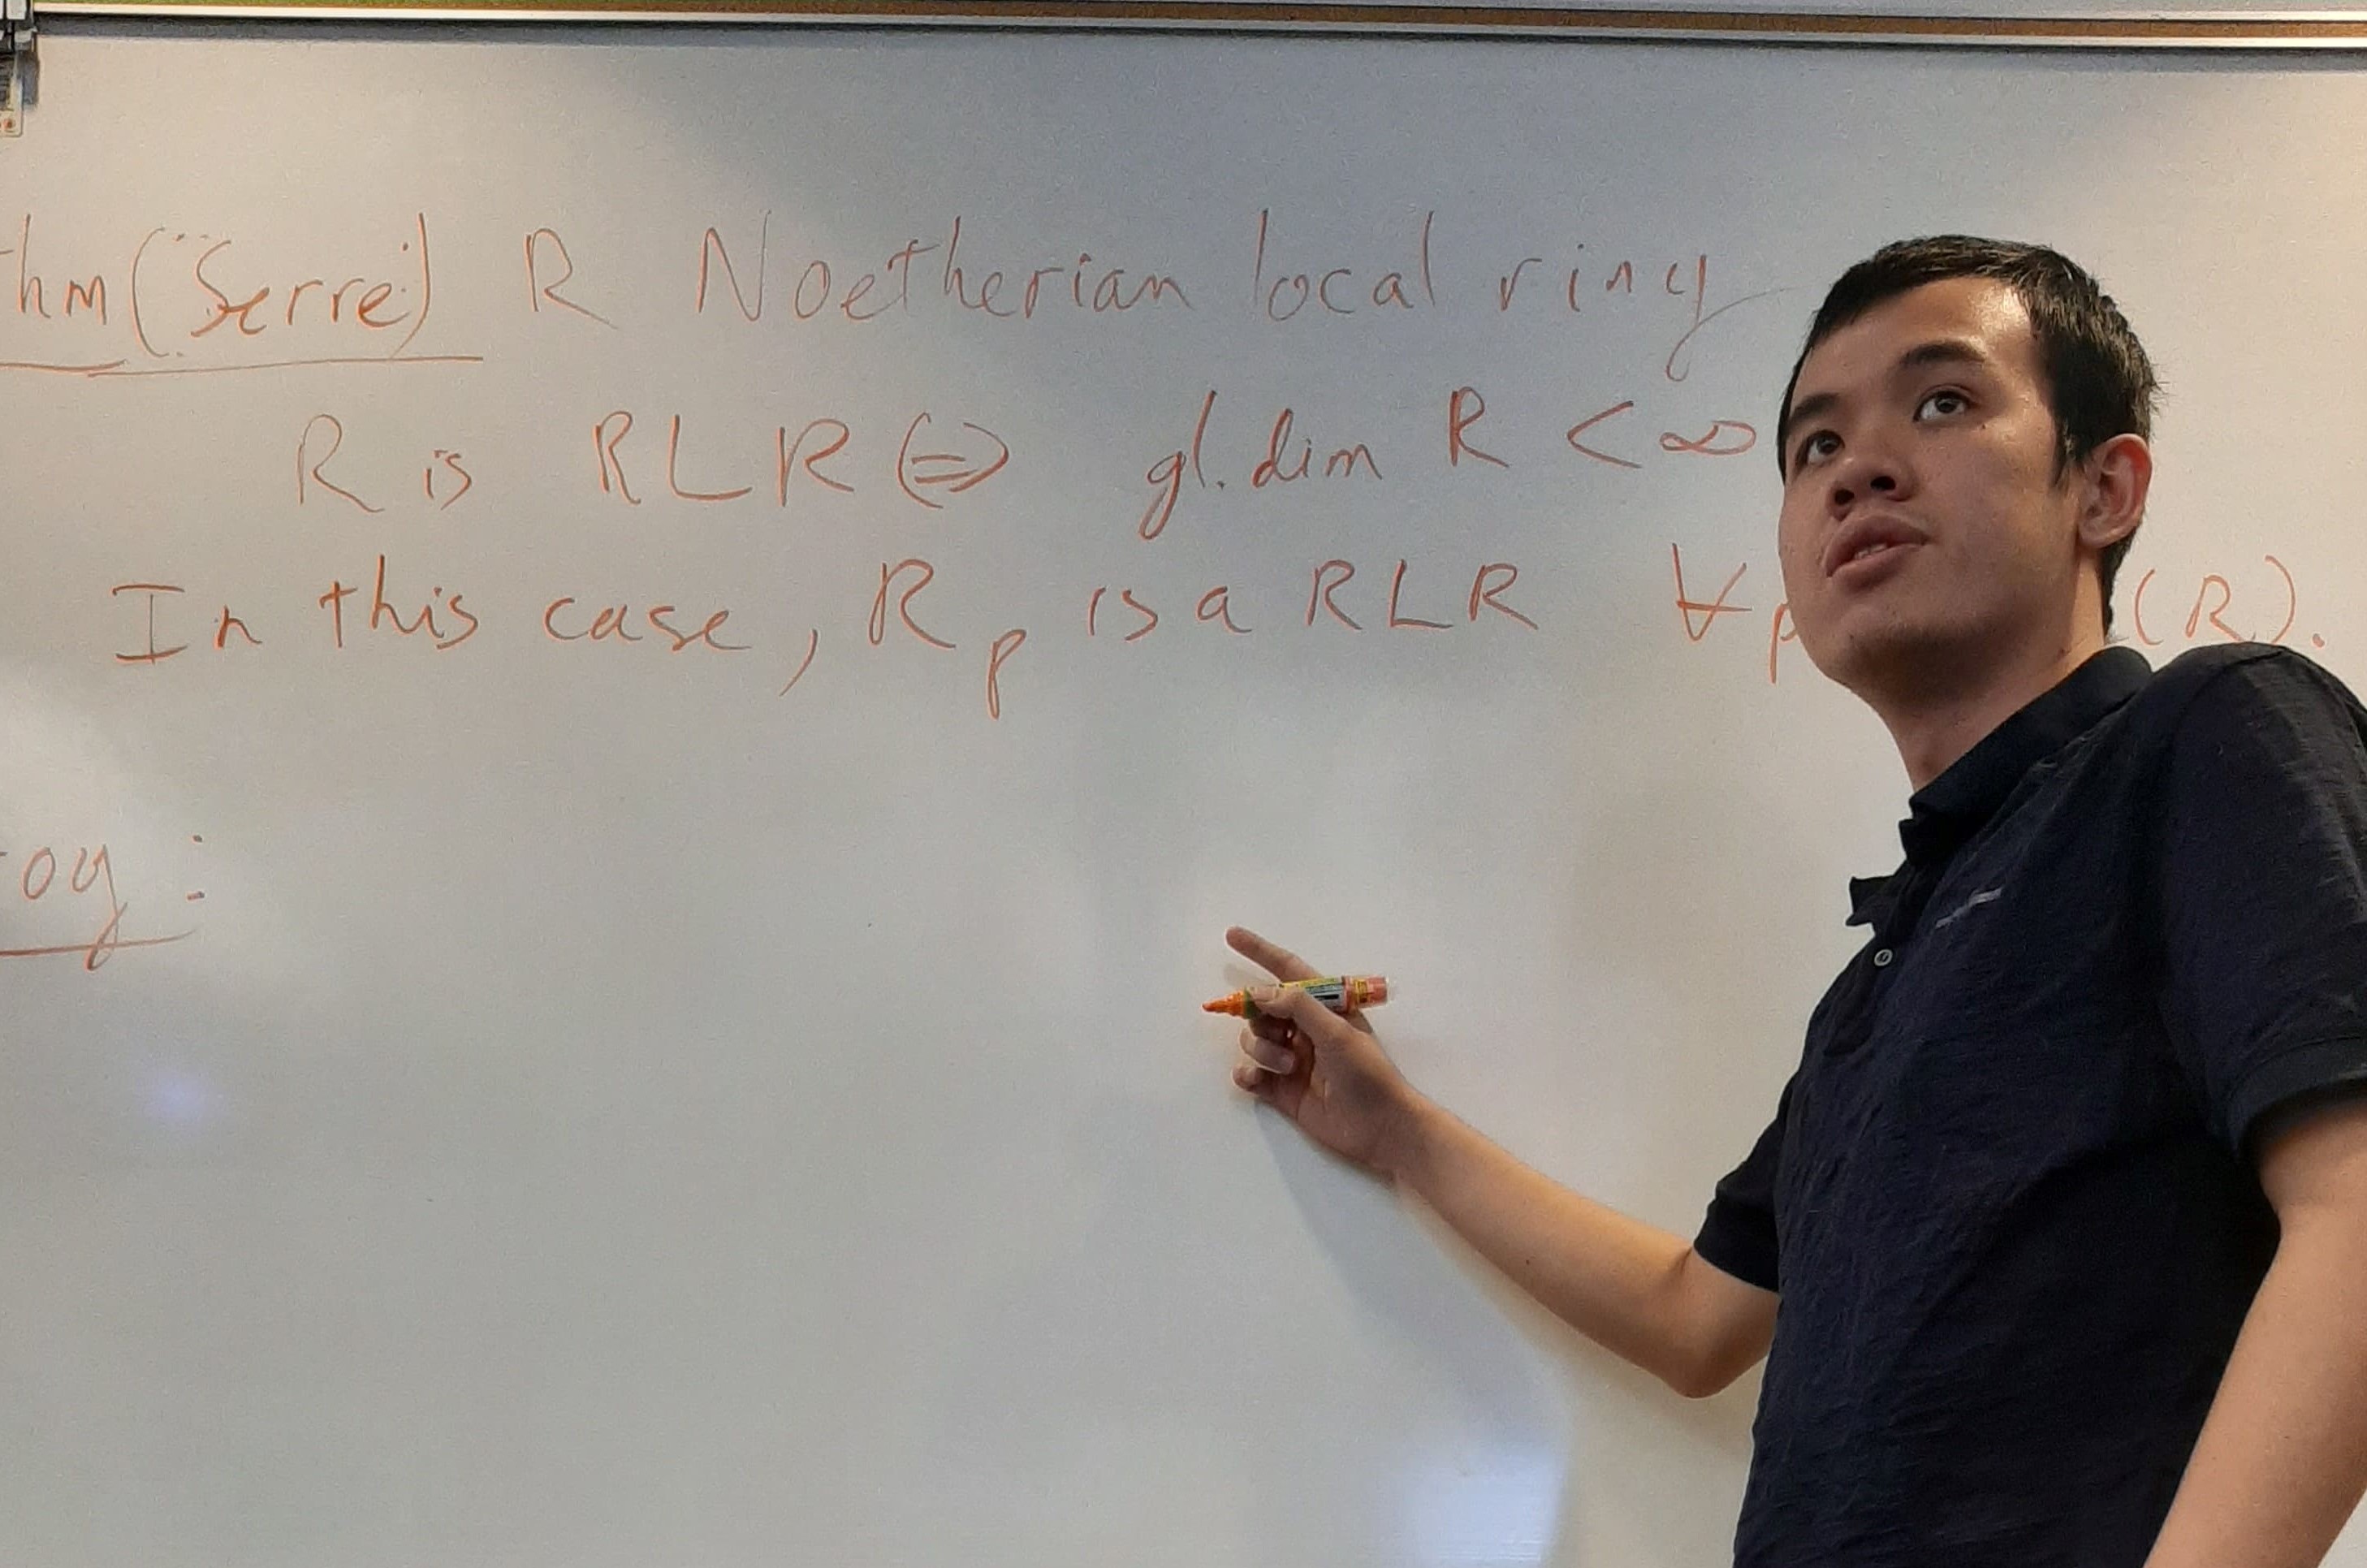 hm (Serre) R Noetherian local ring
R is RLR ⇔ gl.dim R < ∞
In this case, R_p is a RLR ∀p (R).
og: